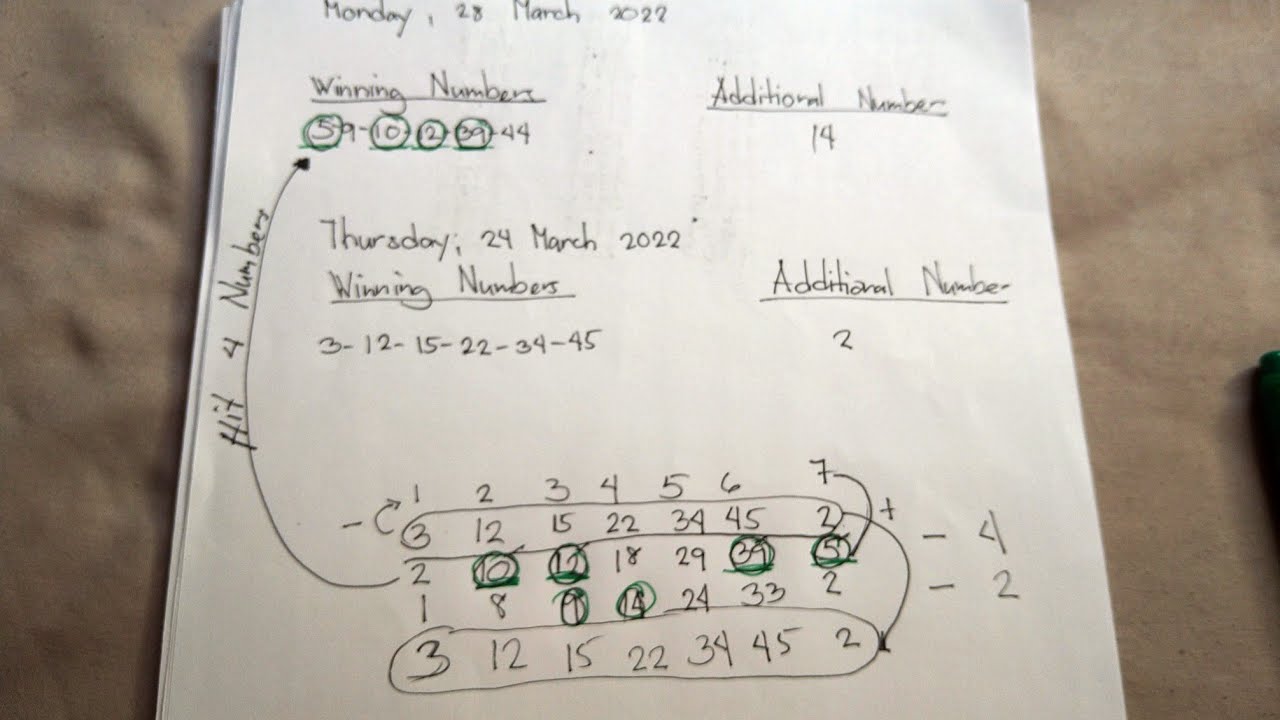 Monday, 28 March 2022
Winning Numbers Additional Number
5 9-10-12-39-44 14
Thursday, 24 March 2022
Winning Numbers Additional Number
3-12-15-22-34-45 2
Hit 4 Numbers
1 2 3 4 5 6 7
- 3 12 15 22 34 45 2 +
2 10 12 18 29 39 5 - 4
1 8 9 14 24 33 2 - 2
3 12 15 22 34 45 2